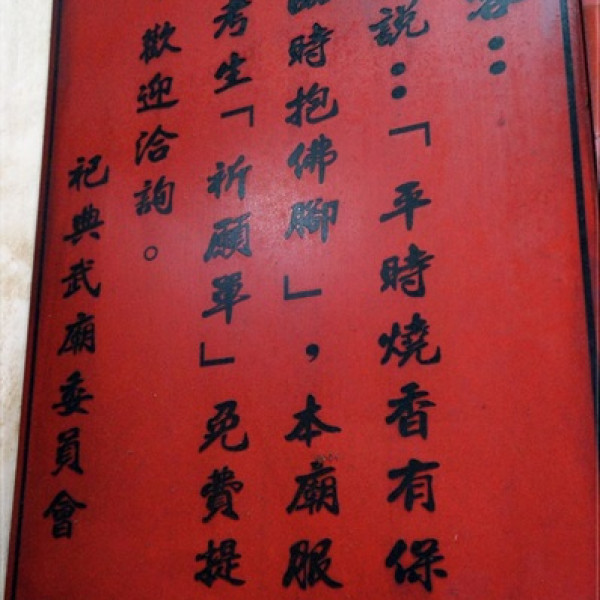 ：
說：「平時燒香有保
臨時抱佛腳」，本廟服
考生「祈願單」免費提
歡迎洽詢。
祀典武廟委員會